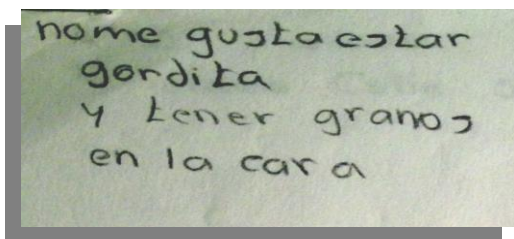 nome gusta estar
gordita
y tener granos
en la cara